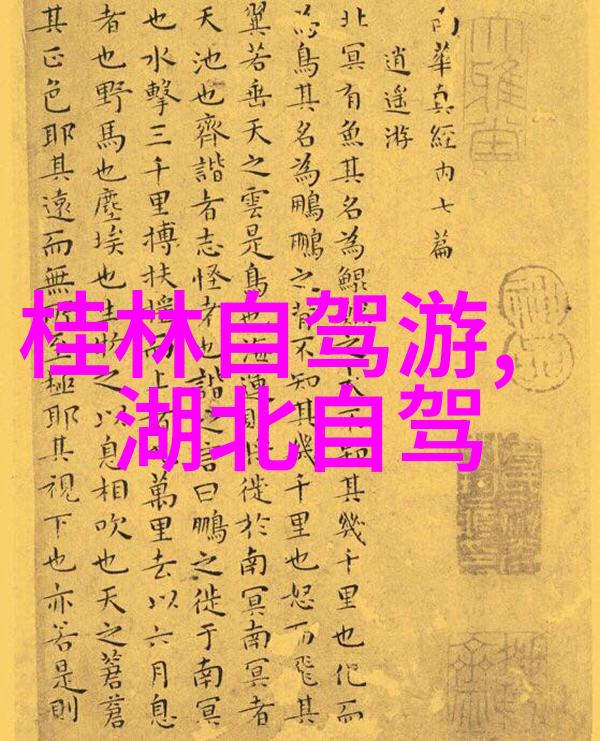 桂林自驾游,
湖北自驾
南華真經内七篇
逍遥游
北冥有魚其名為鯤鯤之大不知其幾千里也化而
為鳥其名為鵬鵬之背不知其幾千里也怒而飛其
翼若垂天之雲是鳥也海運則將徙於南冥南冥者
天池也齊諧者志怪者也諧之言曰鵬之徙于南冥
也水擊三千里搏扶摇而上者九萬里去以六月息
者也野馬也塵埃也生物之以息相吹也天之蒼蒼
其正色耶其遠而無所至極耶其視下也亦若是則
大雅堂
神品